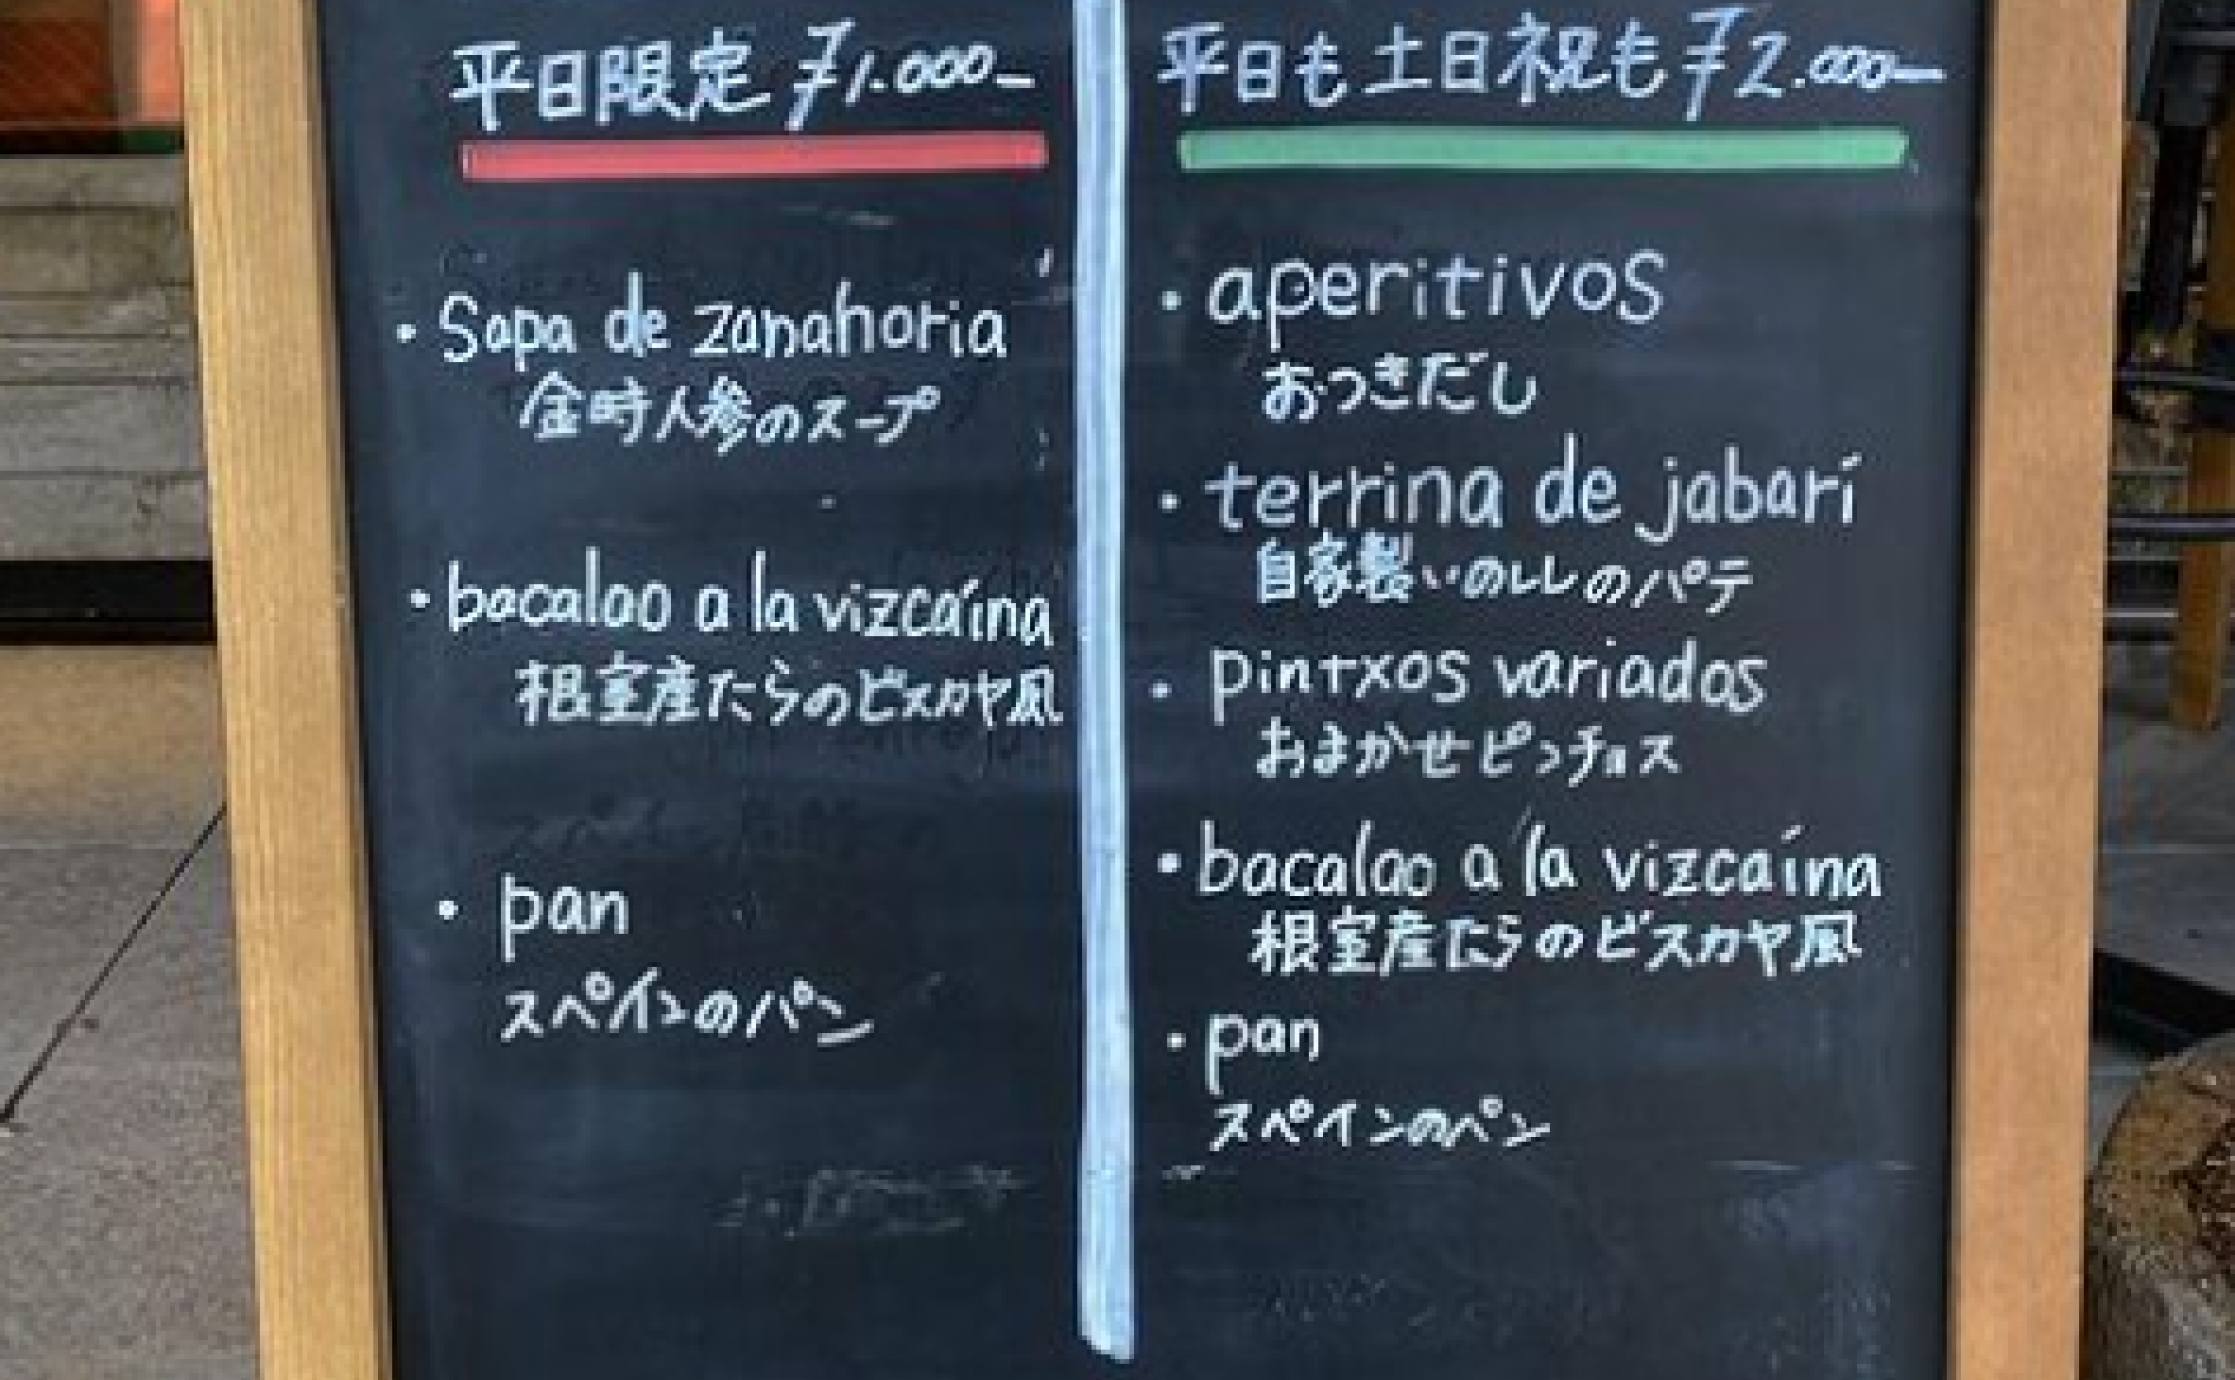 平日限定 ¥1.000-
・Sopa de zanahoria
金時人参のスープ
・bacalao a la vizcaína
根室産たらのビスカヤ風
・pan
スペインのパン
平日も土日祝も ¥2.000-
・aperitivos
おつきだし
・terrina de jabarí
自家製いのししのパテ
・pintxos variados
おまかせピンチョス
・bacalao a la vizcaína
根室産たらのビスカヤ風
・pan
スペインのパン